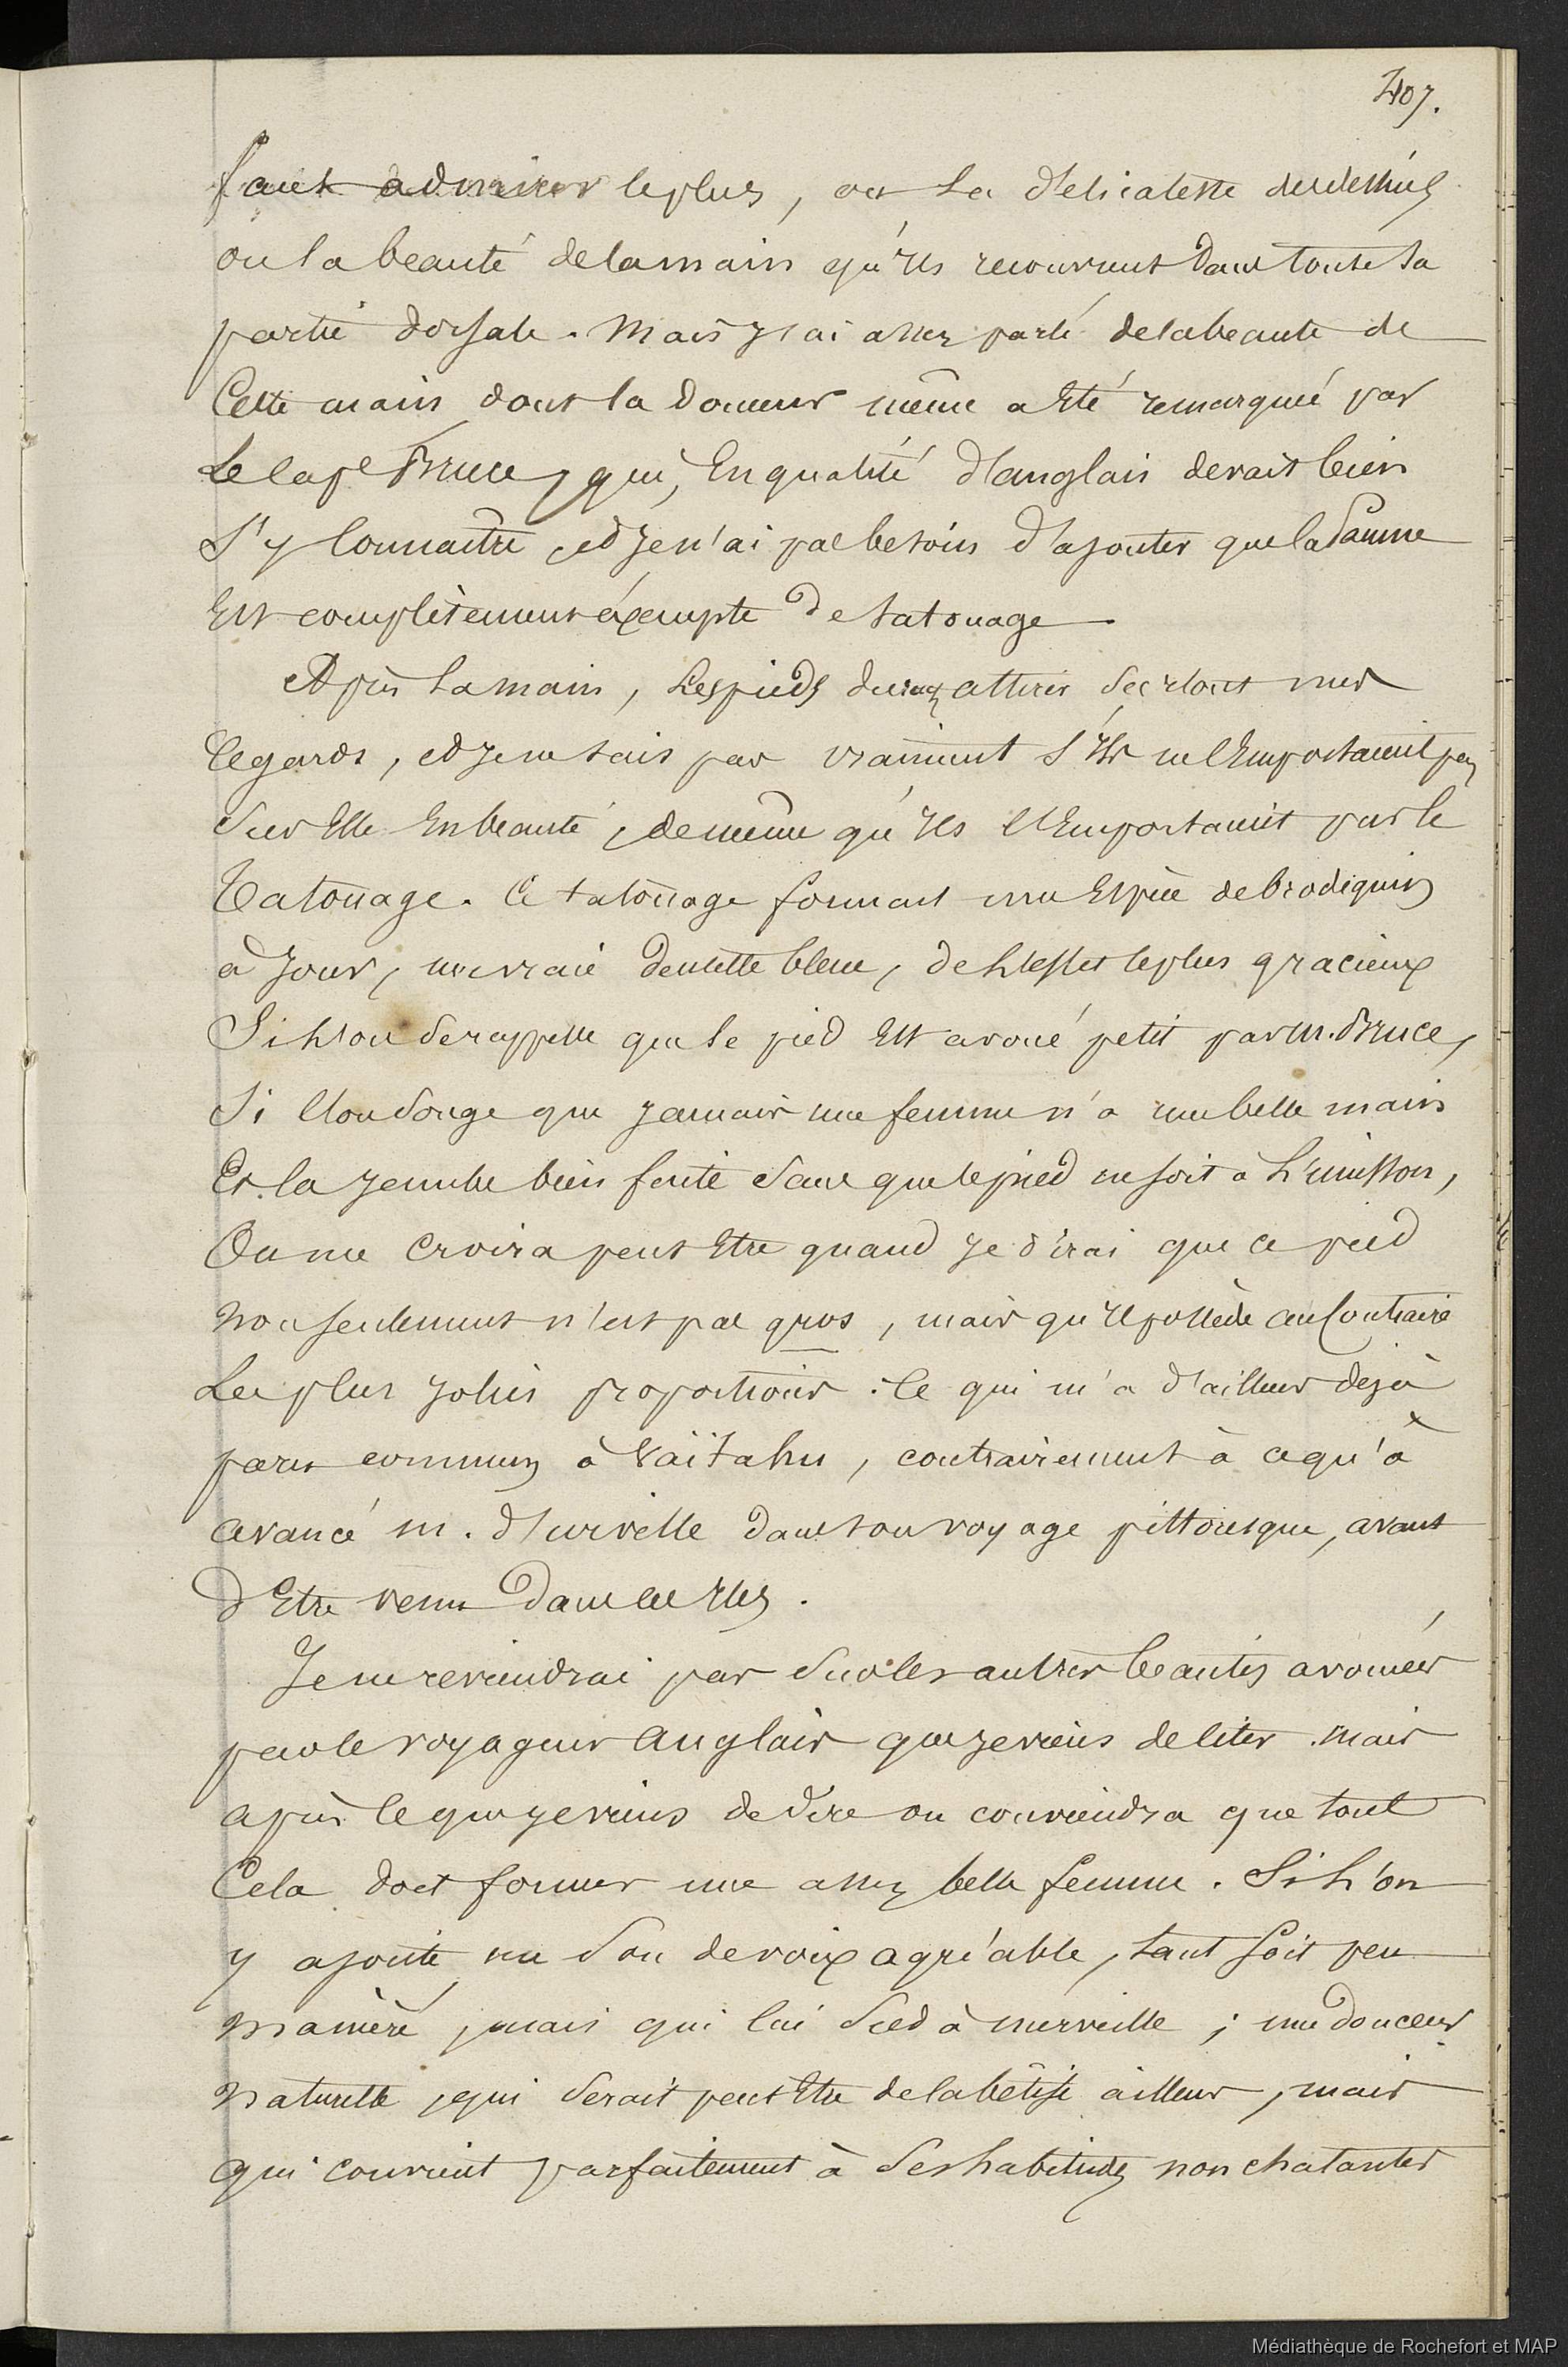 407.
faut admirer le plus, ou la délicatesse des dessins
ou la beauté de la main qu'ils recouvrent dans toute sa
partie dorsale. Mais j'ai assez parlé de la beauté de
Cette main dont la douceur même a Eté remarquée par
Le cape Bruce, qui, En qualité d'anglais devait bien
S'y connaître, et je n'ai pas besoin d'ajouter que la paume
Est complètement éxempte de tatouage.
Après la main, les pieds durent attirer surtout mes
regards, et je ne sais pas vraiment s'ils ne l'Emportaient pas
Sur Elle En beauté, de même qu'ils l'Emportaient par le
Tatouage. Ce tatouage formait une Espèce de brodequins
à jour, une vraie dentelle bleue, de l'effet le plus gracieux
Si l'on se rappelle que le pied Est avoué petit par M. Bruce,
Si l'on songe que jamais une femme n'a une belle main
Et la jambe bien faite sans que le pied ne soit à l'unisson,
On me croira peut Etre quand je dirai que ce pied
Non seulement n'est pas gros, mais qu'il possède au contraire
Les plus jolies proportions : ce qui m'a d'ailleurs déjà
paru commun à Vaïtahu, contrairement à ce qu'à
avancé m. d'urville dans son voyage pittoresque, avant
d'Etre venu dans ces Iles.
Je ne reviendrai pas sur les autres beautés avouées
par le voyageur anglais que je viens de citer. Mais
après ce que je viens de dire on conviendra que tout
Cela doit former une assez belle femme. Si l'on
y ajoute un son de voix agréable, tant soit peu
Maniéré, mais qui lui sied à merveille ; une douceur
Naturelle, qui serait peut Etre de la bêtise ailleurs, mais
qui convient parfaitement à ses habitudes nonchalantes
Médiathèque de Rochefort et MAP